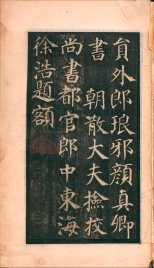 員外郎琅邪顏真卿
書 朝散大夫撿挍
尚書都官郎中東海
徐浩題額